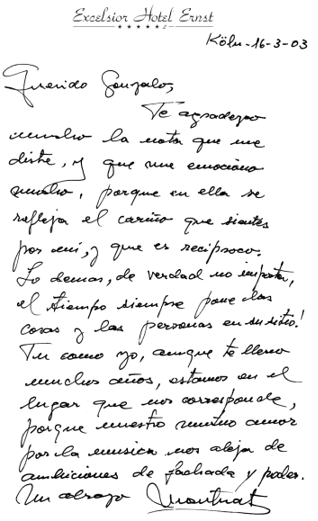 Excelsior Hotel Ernst
Köln-16-3-03
Querido Gonzalo,
Te agradezco
mucho la nota que me
diste, y que me emociono
mucho, porque en ella se
refleja el cariño que sientes
por mi, y que es reciproco.
Lo demas, de verdad no importa,
el tiempo siempre pone las
cosas y las personas en su sitio!
Tu como yo, aunque te llevo
muchos años, estamos en el
lugar que nos corresponde,
porque nuestro mutuo amor
por la musica nos aleja de
ambiciones de fachada y poder.
Un abrazo Montserrat